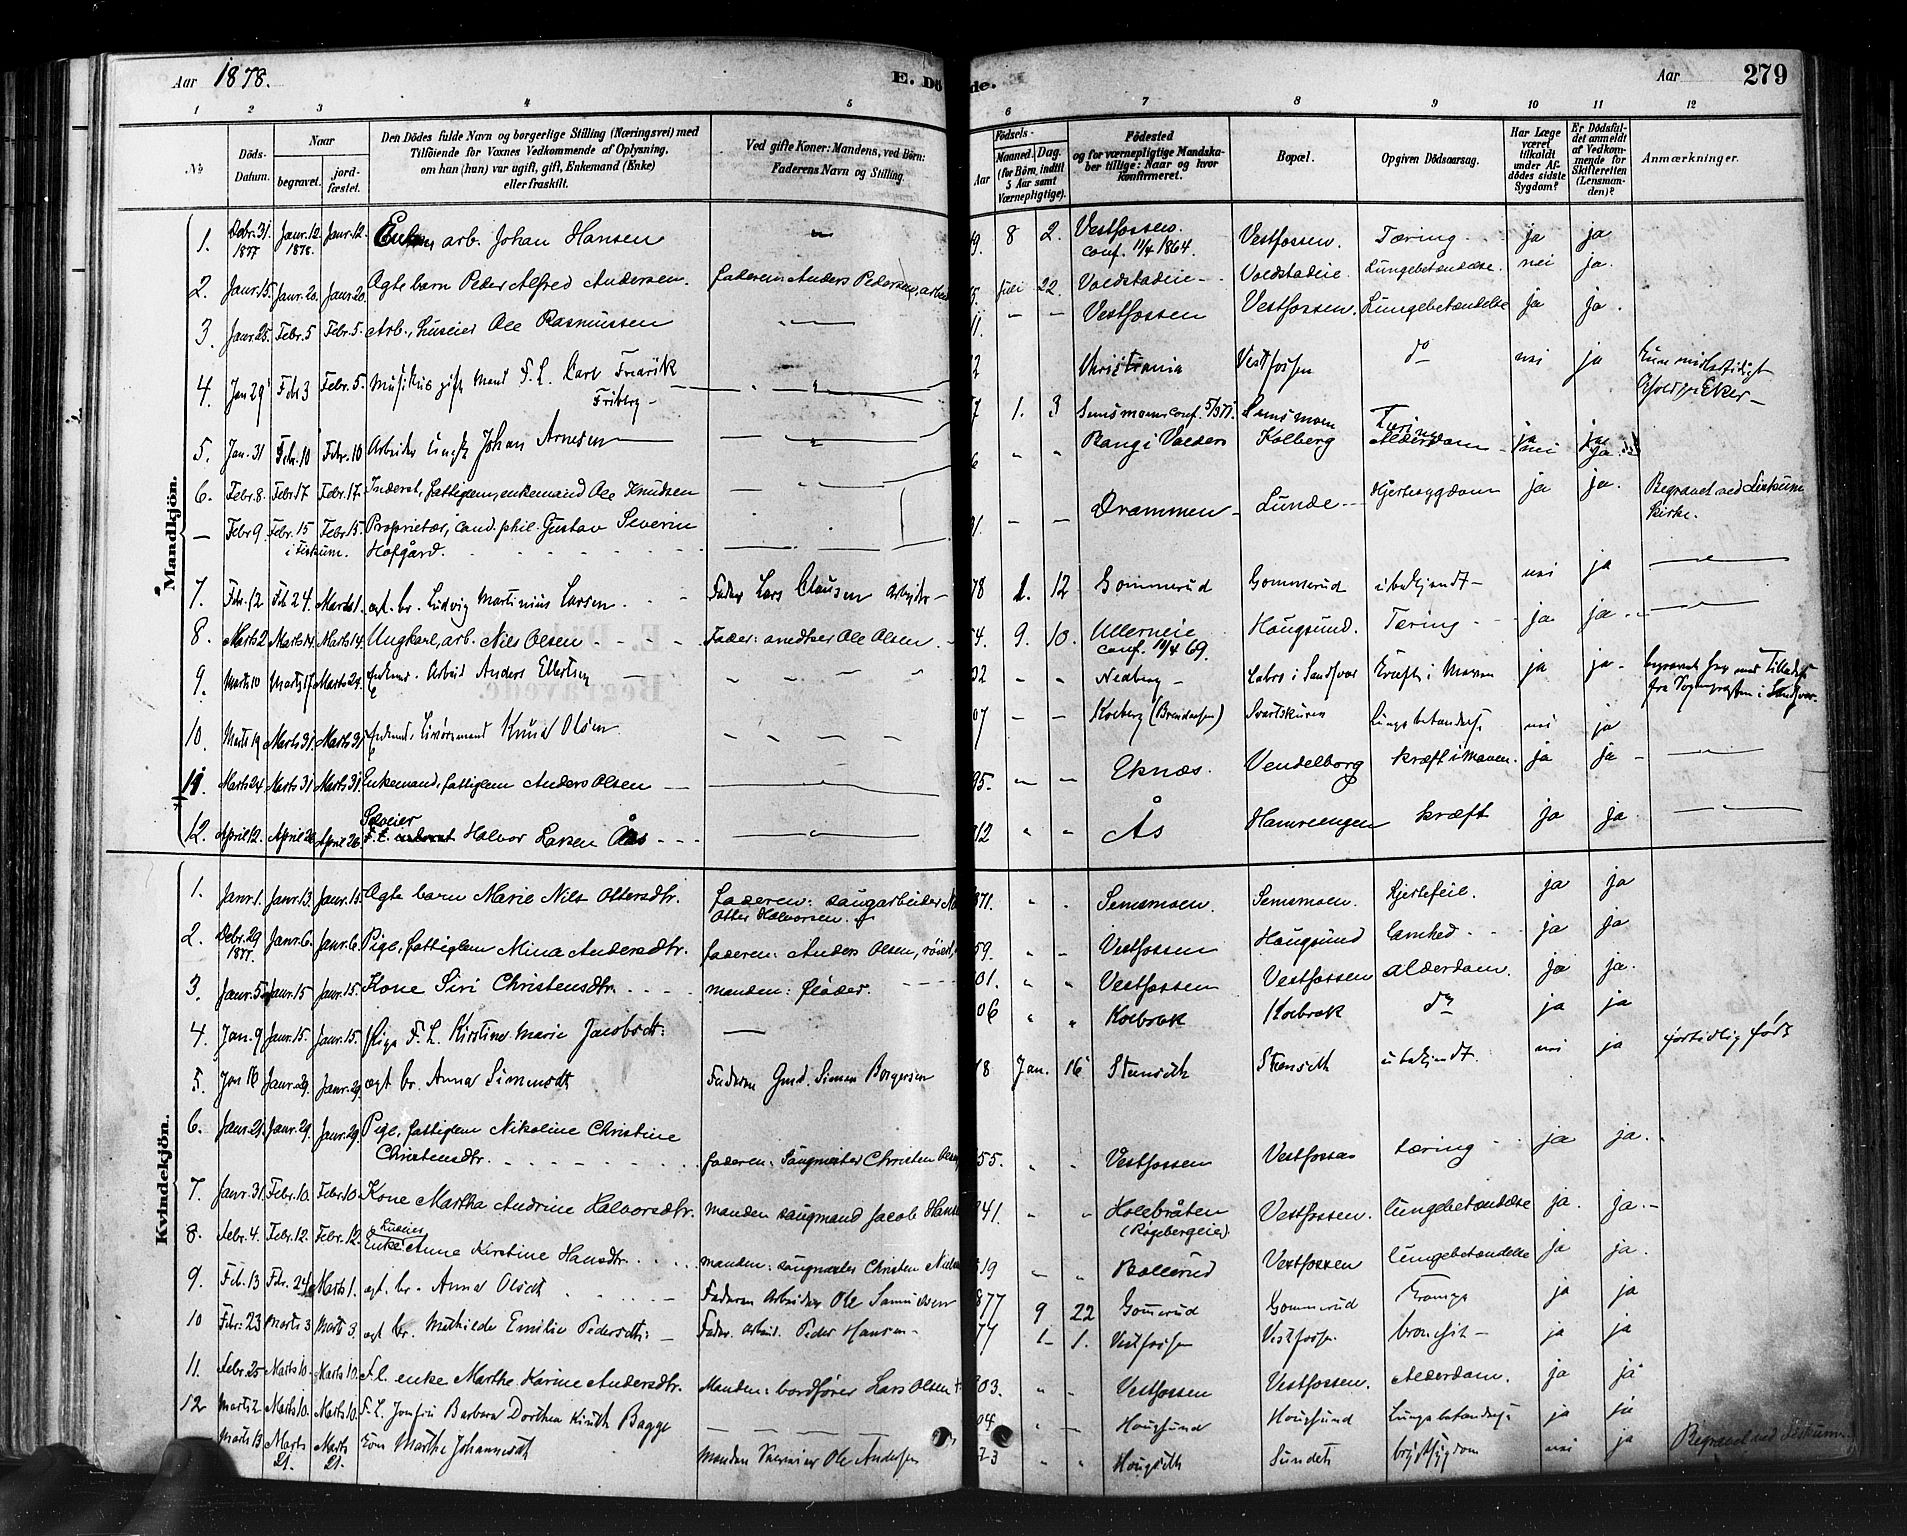 Aar 1878.
E. Dö
de.
Aar 279
1 2 3 4 5 6 7 8 9 10 11 12
№
Döds-Datum.
Naar
begravet.
jordfæstet.
Den Dödes fulde Navn og borgerlige Stilling (Næringsvei) med
Tilföiende for Voxnes Vedkommende af Oplysning,
om han (hun) var ugift, gift, Enkemand (Enke)
eller fraskilt.
Ved gifte Koner: Mandens, ved Börn:
Faderens Navn og Stilling.
Födsels-
Aar
Maaned. Dag.
(for Börn, indtil
5 Aar samt
Værnepligtige).
Födested
og for værnepligtige Mandska-
ber tillige: Naar og hvor
konfirmeret.
Bopæl.
Opgiven Dödsaarsag.
Har Læge
været
tilkaldt
under Af-
dödes sidste
Sygdom?
Er Dödsfal-
det anmeldt
af Vedkom-
mende for
Skifteretten
(Lensman-
den)?
Anmærkninger.
Mandkjön.
1. Debr. 31. 1877 Janr. 12. 1878. Janr. 12. arb. Johan Hansen 9. 8 2. Vestfossen. conf. 11/4 1864. Vestfossen. Tæring ja ja
2. Janr. 15. Janr. 20. Janr. 20. Ægte barn Peder Alfred Andersen. faderen: Anders Pedersen, arbeid 5. Juli 22. Voldstadeie Voldstadeie. Lungebetændelse. nei ja.
3. Janr. 25. Febr. 5 Febr. 5. Arb., huseier Ole Rasmussen 11. Vestfossen Vestfossen. Lungebetændelse ja ja.
4. Jan 29 Feb 3 Febr. 5. Musikus gift mand F. L. Carl Fredrik Friberg 2 Christiania Vestfossen do nei ja Kun midlertidigt Ophold på Eker
5. Jan. 31 Febr. 10 Febr. 10 Arbeider ungk Johan Arnesen 7 1. 3 Semsmoen conf. Semsmoen Tæring ja ja
6. Febr. 8. Febr 17 Febr. 17. Inderst, fattiglem, enkemand Ole Knudsen 6 Vang i Valders Kolberg Alderdom nei ja
Febr. 9. Febr. 15 i Fiskum. Febr 15. Proprietær, cand. phil. Gustav Severin Hofgård. 91. Drammen Lunde Hjertesygdom ja ja. Begravet ved Fiskum Kirke.
7. Febr. 12 Feb 24. Marts 1. ægt. br. Ludvig Martinius Larsen. Fader Lars Clausen Arbeider 78 1. 12 Gommerud Gommerud ubekjendt nei ja
8. Marts 2 Marts 14. Marts 14. Ungkarl, arb. Nils Olsen Fader: snedker Ole Olsen 54. 9. 10. Ullerneie conf. 11/4 69. Hougsund. Tæring ja. ja.
9. Marts 10 Marts 17 Marts 24. Enkemd. Arbeid Anders Ellertsen 02 Nedberg Labro i Sandsvær Kræft i Maven ja ja. begravet her med Tilladelse fra Sogneprest i Sandsvær
10. Marts 19 Marts 31. Marts 31 Enkemd. Livøresmand Knud Olsen 07 Kolberg (Brendaasen) Svartskuren Lungebetændelse nei ja
11. Marts 24 Marts 31 Marts 31. Enkemand, fattiglem Anders Olsen 95. Eknæs. Vendelborg kræft i Maven. ja ja
12. April 12. April 26 April 26. Selveier F. L. Halvor Larsen Ås 12 Ås Hamrevengen kræft ja ja
Kvindekjön.
1. Janr. 1. Janr. 13. Janr. 15. Ægte barn Marie Nils Ottersdtr. faderen: saugarbeider Otter Halvorsen. 871. Semsmoen. Semsmoen. hjertefeil. ja ja
2. Debr. 29 1877. Janr. 6. Janr. 6. Pige, fattiglem Mina Andersdtr. faderen: Anders Olsen, 59. Vestfossen Hougsund lamhed ja ja
3. Janr. 5 Janr. 15 Janr. 15. Kone Siri Christensdtr. manden: fløder. 01. Vestfossen Vestfossen alderdom. ja ja.
4. Jan. 9 Janr. 15. Janr. 15. Pige F. L. Kirstine Marie Jacobsdt: 06 Kolbræk Kolbræk do ja ja
5. Jan 16 Janr. 29. Janr. 29. ægt br. Anna Simensdt Faderen Gmd. Simen Borgersen 78 Jan. 16 Stenseth Stenseth ubekjendt. nei ja fortidlig født
6. Janr. 21. Janr. 29. Janr. 29. Pige, fattiglem Nikoline Christine Christensdtr. faderen: Saugmester Christen Olsen 55. Vestfossen Vestfossen tæring ja ja.
7. Janr. 31. Febr. 10. Febr. 10. Kone Martha Andrine Halvorsdtr. manden saugmand Jacob Hansen 841. Holebråten (Røgebergeie) Vestfossen. lungebetændelse ja. ja.
8. Febr. 4. Febr. 12. Febr. 12. Huseier Enke Anne Kirstine Hansdtr. manden: saugmester Christen 819 Bollerud Vestfossen lungebetændelse ja ja.
9. Feb. 13 Febr. 24 Marts 1. ægt. br. Anna Olsdt Faderen Arbeider Ole Samuelsen 877 9 22 Gomerud Gommerud Krampe ja ja
10 Febr. 23 Marts 3 Marts 3. ægt br. Mathilde Emilie Pedersdt: Fader. arbeid. Peder Hansen 77 1 1. Vestfossen Vestfossen bronchit ja ja
11. Febr. 25 Marts 10. Marts 10. F. l. enke Marthe Karine Andersdtr. Manden: bordfører Lars Olsen 803. Vestfossen Vestfossen. Alderdom. ja ja
12 Marts 2 Marts 10. Marts 10. F. L. Jomfru Barbara Dorthea Bagge 04 Hougsund Hougsund Lungebetændelse ja ja
Marts 13 Marts 21. Marts 21. Kone Marthe Johannesdt Manden Ole Andersen 23 Hougseth Sundet brystsygdom nei ja Begravet ved Fiskum